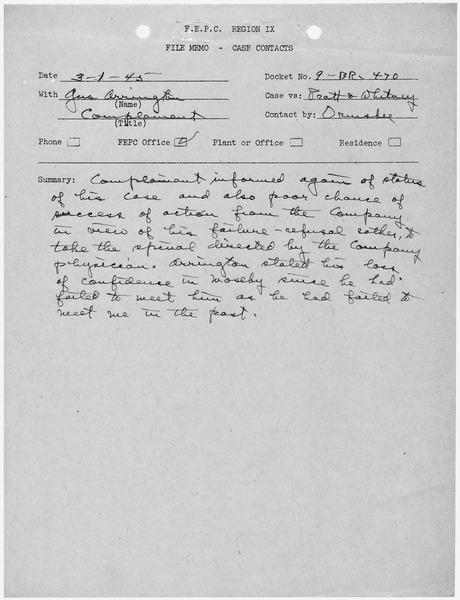 F.E.P.C. REGION IX
FILE MEMO - CASE CONTACTS
Date 3-1-45 Docket No. 9-BR-470
With Gus Arrington Case vs: Pratt & Whitney
(Name)
Complainant Contact by: Ormsbee
(Title)
Phone FEPC Office ✓ Plant or Office Residence
Summary: Complainant informed again of status
of his case and also poor chance of
success of action from the Company
in view of his failure-refusal rather, to
take the spinal directed by the Company
physician. Arrington stated his loss
of confidence in Mosby since he had
failed to meet him as he had failed to
meet me in the past.